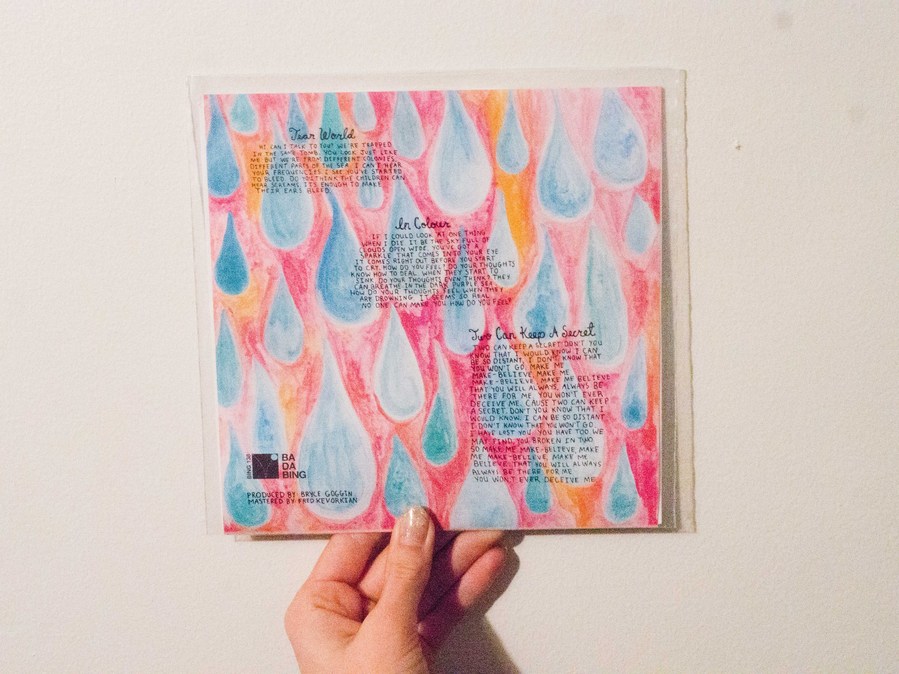 Tear World
HI CAN I TALK TO YOU? WE'RE TRAPPED
IN THE SAME TOMB. YOU LOOK JUST LIKE
ME BUT WE'RE FROM DIFFERENT COLONIES,
DIFFERENT PARTS OF THE SEA. I CAN'T HEAR
YOUR FREQUENCIES I SEE YOU'VE STARTED
TO BLEED. DO YOU THINK THE CHILDREN CAN
HEAR SCREAMS ITS ENOUGH TO MAKE
THEIR EARS BLEED.
In Colour
IF I COULD LOOK AT ONE THING
WHEN I DIE IT BE THE SKY FULL OF
CLOUDS OPEN WIDE. YOU'VE GOT A
SPARKLE THAT COMES INTO YOUR EYE
IT COMES RIGHT OUT BEFORE YOU START
TO CRY. HOW DO YOU FEEL? DO YOUR THOUGHTS
KNOW HOW TO DEAL WHEN THEY START TO
SINK. DO YOUR THOUGHTS EVEN THINK? THEY
CAN BREATHE IN THE DARK PURPLE SEA.
HOW DO YOUR THOUGHTS FEEL WHEN THEY
ARE DROWNING. IT SEEMS SO REAL
NO ONE CAN MAKE YOU HOW DO YOU FEEL?
Two Can Keep A Secret
TWO CAN KEEP A SECRET DON'T YOU
KNOW THAT I WOULD KNOW I CAN
BE SO DISTANT, I DON'T KNOW THAT
YOU WON'T GO. MAKE ME
MAKE-BELIEVE, MAKE ME
MAKE-BELIEVE, MAKE ME BELIEVE
THAT YOU WILL ALWAYS, ALWAYS BE
THERE FOR ME. YOU WON'T EVER
DECEIVE ME. CAUSE TWO CAN KEEP
A SECRET, DON'T YOU KNOW THAT I
WOULD KNOW. I CAN BE SO DISTANT
I DON'T KNOW THAT YOU WON'T GO.
I HAVE LOST YOU, YOU HAVE TOO. WE
MAY FIND, YOU BROKEN IN TWO
SO MAKE ME MAKE-BELIEVE, MAKE
ME MAKE-BELIEVE, MAKE ME
BELIEVE, THAT YOU WILL ALWAYS
ALWAYS BE THERE FOR ME
YOU WON'T EVER DECEIVE ME
BA
DA
BING
PRODUCED BY: BRYCE GOGGIN
MASTERED BY: FRED KEVORKIAN